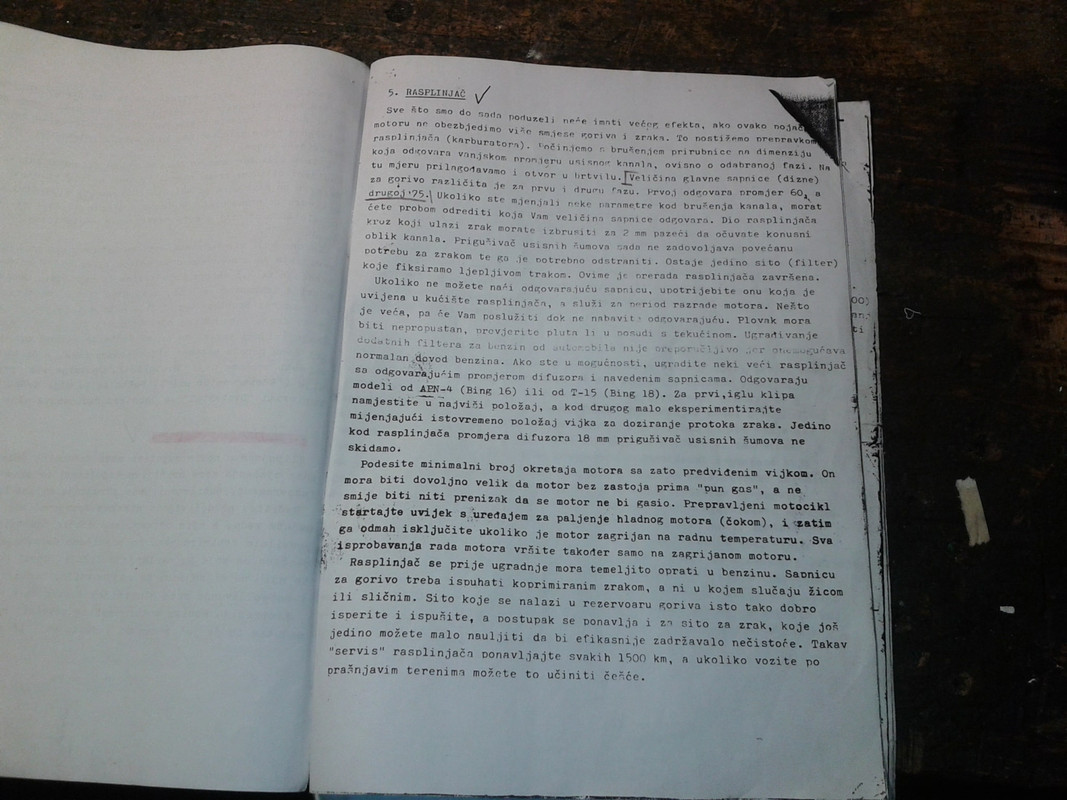 5. RASPLINJAČ
Sve što smo do sada poduzeli neće imati većeg efekta, ako ovako
motoru ne obezbjedimo više smjese goriva i zraka. To postižemo prepravkom
rasplinjača (karburatora). Počinjemo s brušenjem prirubnice na dimenziju
koja odgovara vanjskom promjeru usisnog kanala, ovisno o odabranoj fazi. Na
tu mjeru prilagođavamo i otvor u brtvilu. Veličina glavne sapnice (dizne)
za gorivo različita je za prvu i drugu fazu. Prvoj odgovara promjer 60, a
drugoj 75. Ukoliko ste mjenjali neke parametre kod brušenja kanala, morat
ćete probom odrediti koja Vam veličina sapnice odgovara. Dio rasplinjača
kroz koji ulazi zrak morate izbrusiti za 2 mm pazeći da očuvate konusni
oblik kanala. Prigušivač usisnih šumova sada ne zadovoljava povećanu
potrebu za zrakom te ga je potrebno odstraniti. Ostaje jedino sito (filter)
koje fiksiramo ljepljivom trakom. Ovime je prerada rasplinjača završena.
Ukoliko ne možete naći odgovarajuću sapnicu, upotrijebite onu koja je
uvijena u kućište rasplinjača, a služi za period razrade motora. Nešto
je veća, pa će Vam poslužiti dok ne nabavite odgovarajuću. Plovak mora
biti nepropustan, provjerite pluta li u posudi s tekućinom. Ugrađivanje
dodatnih filtera za benzin od automobila nije preporučljivo jer onemogućava
normalan dovod benzina. Ako ste u mogućnosti, ugradite neki veći rasplinjač
sa odgovarajućim promjerom difuzora i navedenim sapnicama. Odgovaraju
modeli od APN-4 (Bing 16) ili od T-15 (Bing 18). Za prvi, iglu klipa
namjestite u najviši položaj, a kod drugog malo eksperimentirajte
mijenjajući istovremeno položaj vijka za doziranje protoka zraka. Jedino
kod rasplinjača promjera difuzora 18 mm prigušivač usisnih šumova ne
skidamo.
Podesite minimalni broj okretaja motora sa zato predviđenim vijkom. On
mora biti dovoljno velik da motor bez zastoja prima "pun gas", a ne
smije biti niti prenizak da se motor ne bi gasio. Prepravljeni motocikl
startajte uvijek s uređajem za paljenje hladnog motora (čokom), i zatim
ga odmah isključite ukoliko je motor zagrijan na radnu temperaturu. Sva
isprobavanja rada motora vršite također samo na zagrijanom motoru.
Rasplinjač se prije ugradnje mora temeljito oprati u benzinu. Sapnicu
za gorivo treba ispuhati koprimiranim zrakom, a ni u kojem slučaju žicom
ili sličnim. Sito koje se nalazi u rezervoaru goriva isto tako dobro
isperite i ispušite, a postupak se ponavlja i za sito za zrak, koje još
jedino možete malo nauljiti da bi efikasnije zadržavalo nečistoće. Takav
"servis" rasplinjača ponavljajte svakih 1500 km, a ukoliko vozite po
prašnjavim terenima možete to učiniti češće.